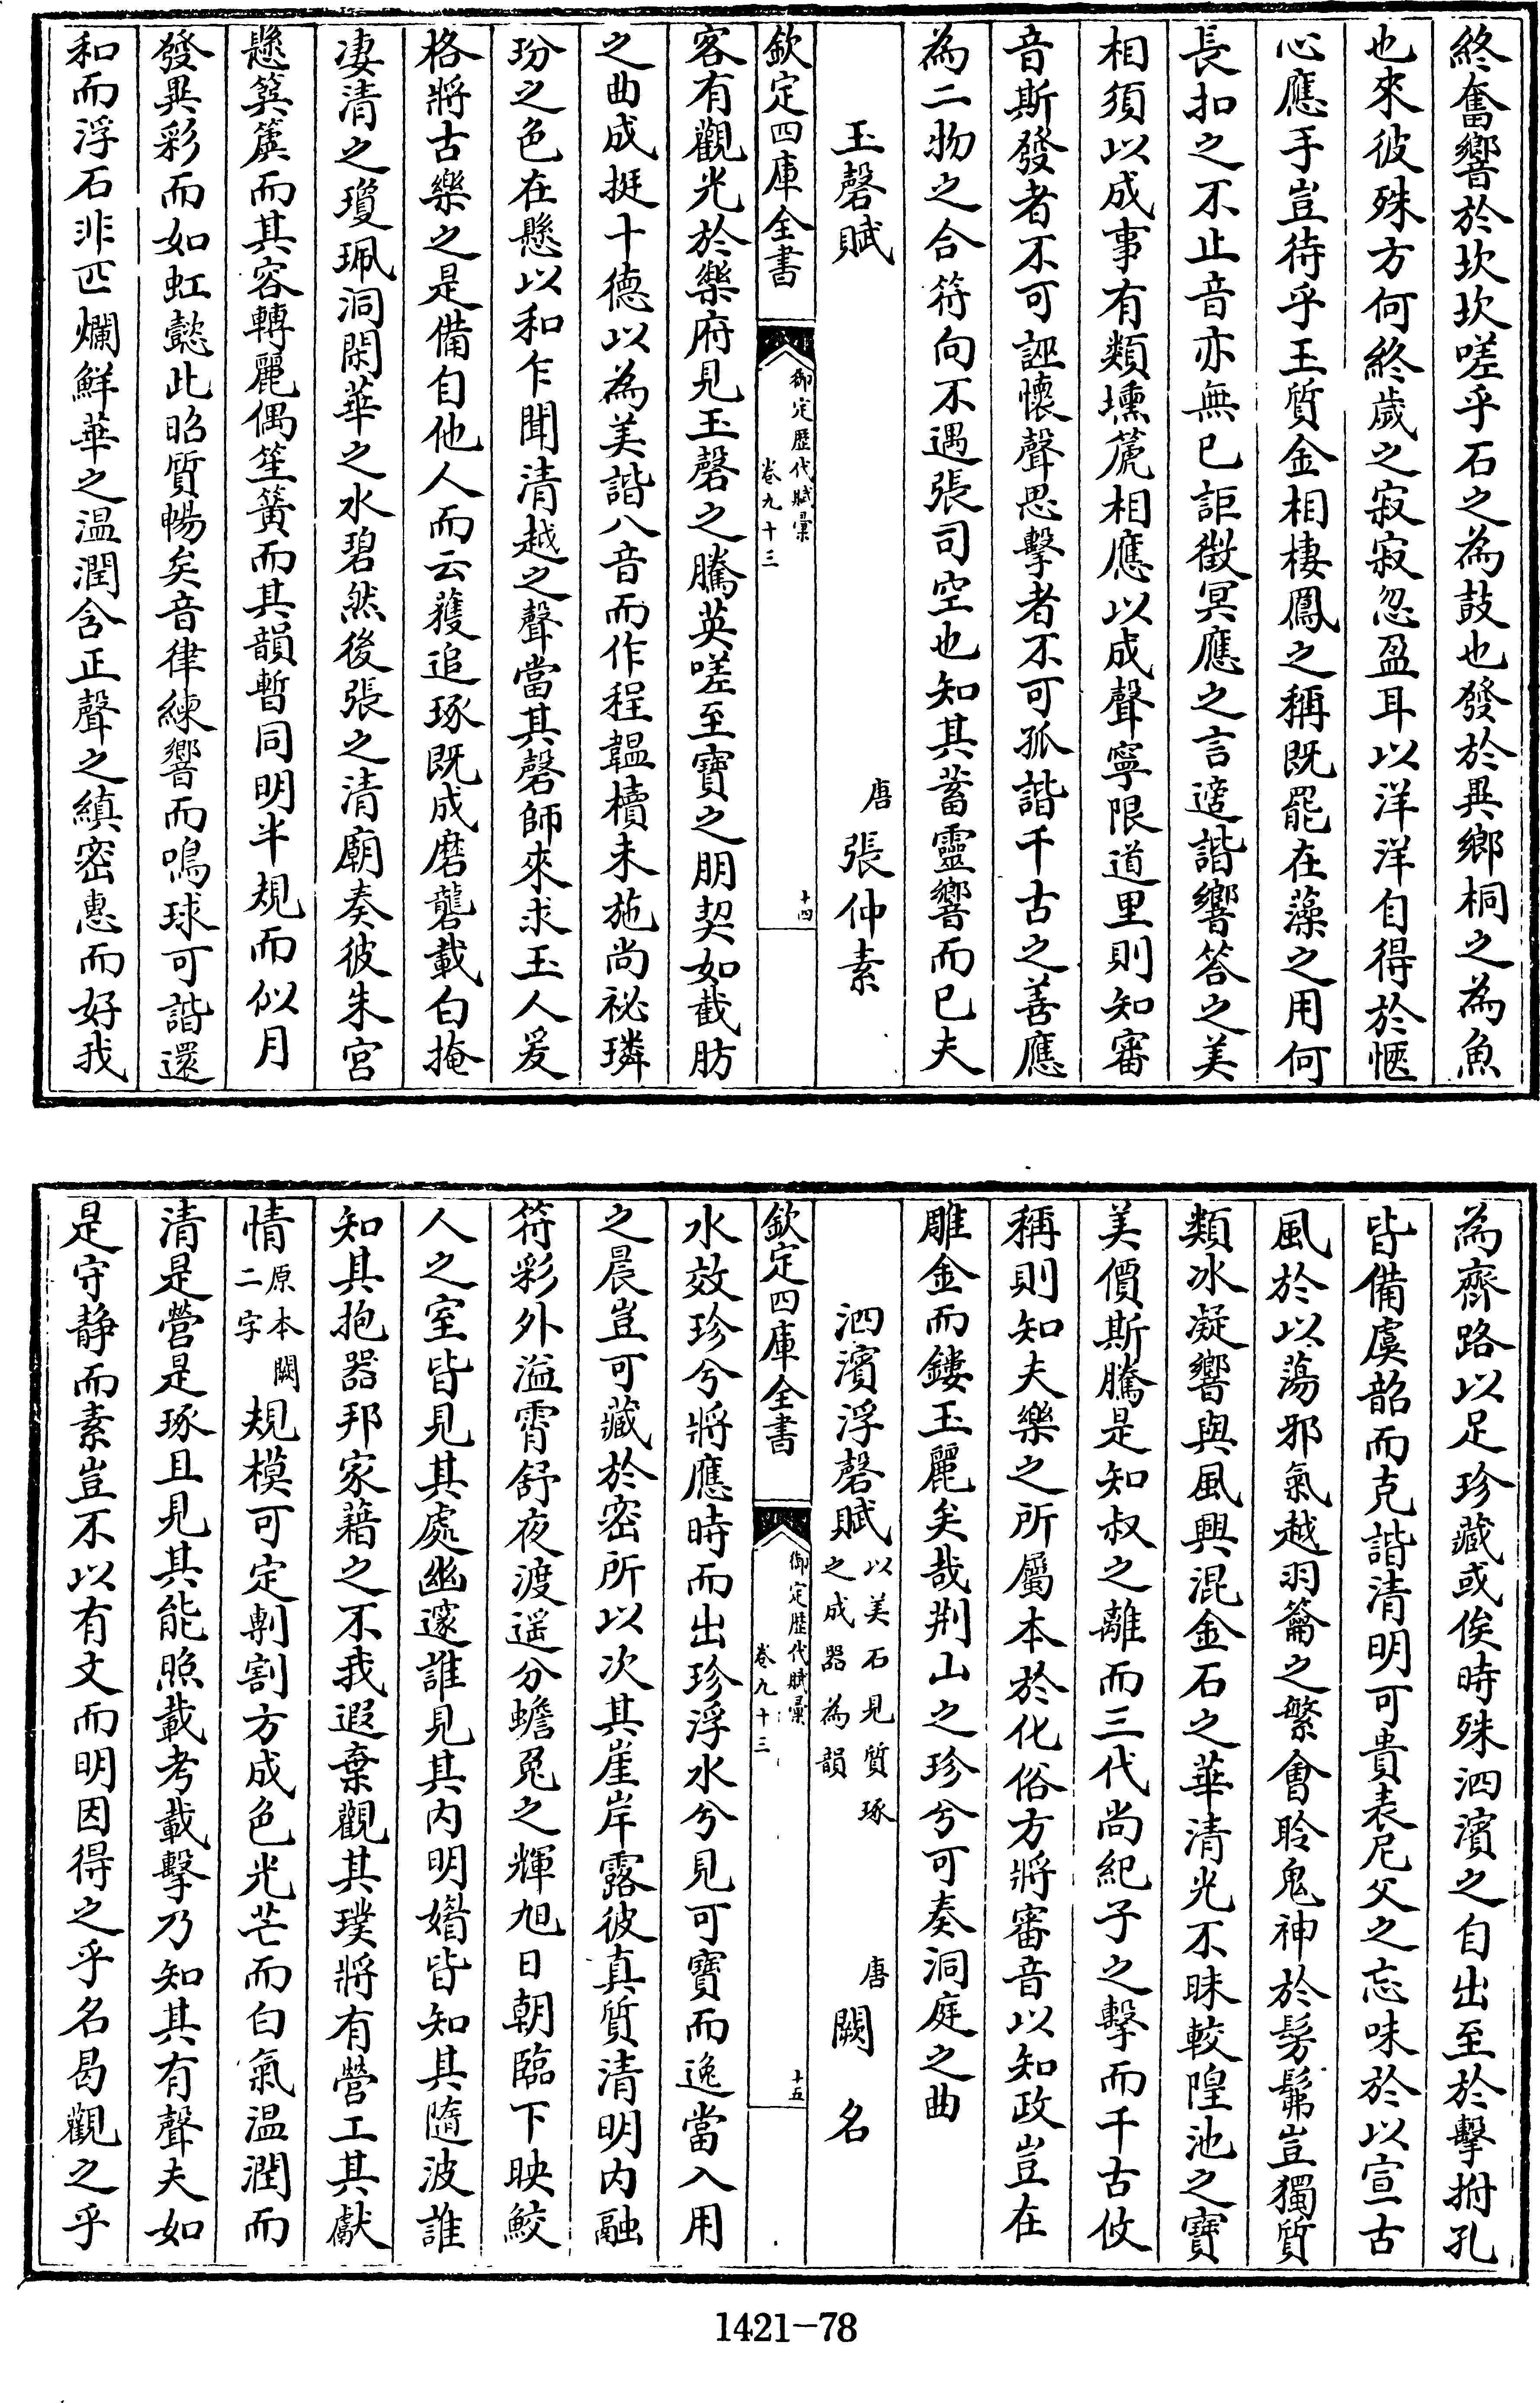 終奮響於坎坎嗟乎石之為鼓也發於異鄉桐之為魚
也來彼殊方何終歲之寂寂忽盈耳以洋洋自得於愜
心應手豈待乎玉質金相棲鳳之稱既罷在藻之用何
長扣之不止音亦無已詎徵冥應之言適諧響答之美
相須以成事有類壎篪相應以成聲寧限道里則知審
音斯發者不可誣懷聲思擊者不可孤諧千古之善應
為二物之合符向不遇張司空也知其蓄靈響而已夫
玉磬賦 唐 張仲素
欽定四庫全書 御定歷代賦彙 卷九十三 十四
客有觀光於樂府見玉磬之騰英嗟至寶之朋契如截肪
之曲成挺十德以為美諧八音而作程韞櫝未施尚祕璘
玢之色在懸以和乍聞清越之聲當其磬師來求玉人爰
格將古樂之是備自他人而云獲追琢既成磨礱載白掩
凄清之瓊珮洞閑華之水碧然後張之清廟奏彼朱宮
懸簨簴而其容轉麗偶笙簧而其韻暫同明半規而似月
發異彩而如虹懿此昭質暢矣音律練響而鳴球可諧還
和而浮石非匹爛鮮華之温潤含正聲之縝密惠而好我
為齊路以足珍藏或俟時殊泗濱之自出至於擊拊孔
皆備虞韶而克諧清明可貴表尼父之忘味於以宣古
風於以蕩邪氣越羽籥之繁會聆鬼神於髣髴豈獨質
類冰凝響與風興混金石之華清光不昧較隍池之寶
美價斯騰是知叔之離而三代尚紀子之擊而千古攸
稱則知夫樂之所屬本於化俗方將審音以知政豈在
雕金而鏤玉麗矣哉荆山之珍兮可奏洞庭之曲
泗濱浮磬賦 以美石見質琢之成器為韻 唐 闕名
欽定四庫全書 御定歷代賦彙 卷九十三 十五
水效珍兮將應時而出珍浮水兮見可寶而逸當入用
之晨豈可藏於密所以次其崖岸露彼真質清明内融
符彩外溢霄舒夜渡遥分蟾兎之輝旭日朝臨下映鮫
人之室皆見其處幽邃誰見其内明㛰皆知其隨波誰
知其抱器邦家藉之不我遐棄觀其璞將有營工其獻
情 原本闕二字 規模可定剸割方成色光芒而白氣温潤而
清是營是琢且見其能照載考載擊乃知其有聲夫如
是守静而素豈不以有文而明因得之乎名曷觀之乎
1421-78